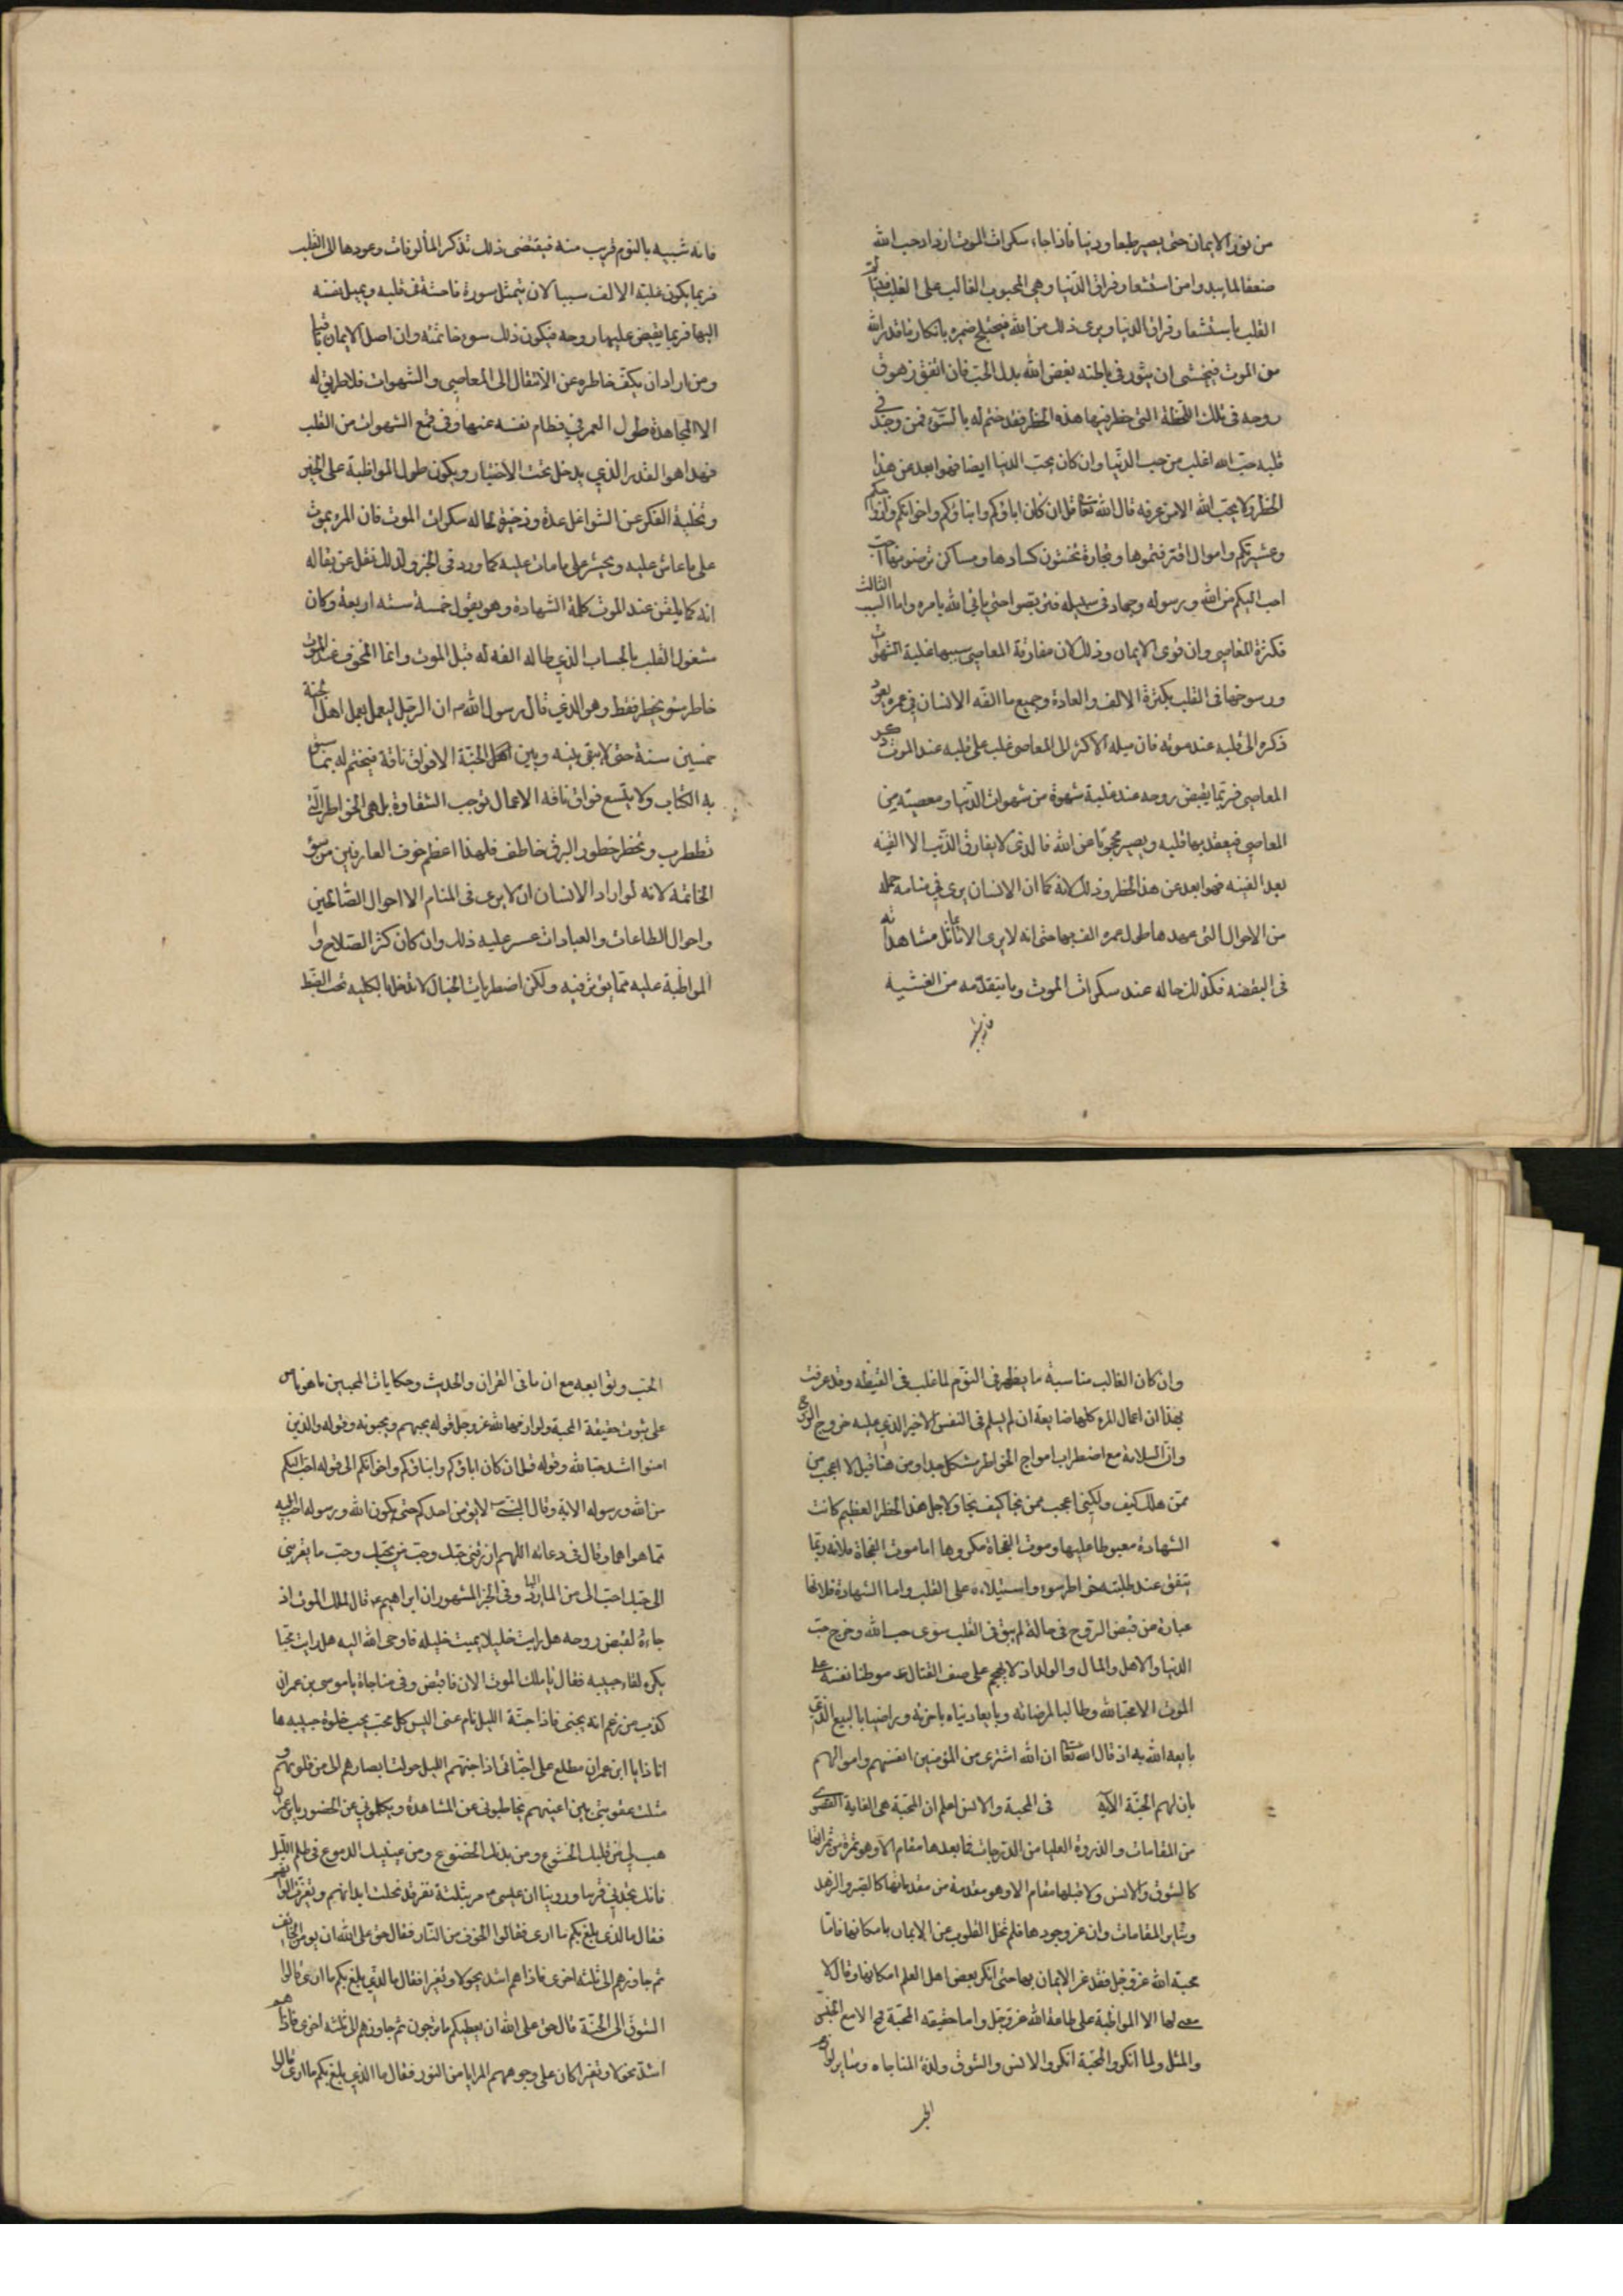 من نور الايمان حتى يصير طبعا ورينا فاذا جاء سكرات الموت ازداد حب الله
ضعفا لما يبدوا من استشعار فراق الدنيا وهي المحبوب الغالب على القلب فيتالم
القلب باستشعار فراق الدنيا ويرى ذلك من الله فيختلج ضميره بانكار ما قدر الله
من الموت فيخشى ان يثور في باطنه بغض الله بدل الحب فان اتفق زهوق
روحه في تلك اللحظة التي خطر فيها هذه الخطر فقد ختم له بالسوء فمن وجد في
قلبه حب الله اغلب من حب الدنيا وان كان يحب الدنيا ايضا فهو ابعد عن هذا
الخطر ولا يحب الله الا من عرفه قال الله تعا قل ان كان اباؤكم وابناؤكم واخوانكم وازواجكم
وعشيرتكم واموال اقترفتموها وتجارة تخشون كسادها ومساكن ترضونها احب
احب اليكم من الله ورسوله وجهاد في سبيله فتربصوا حتى ياتي الله بامره واما السبب الثالث
فكثرة المعاصي وان قوى الايمان وذلك لان مقارفة المعاصي سببها غلبة الشهوات
ورسوخها في القلب بكثرة الالف والعادة وجميع ما الفه الانسان في عمره يعود
ذكره الى قلبه عند موته فان ميله الاكثر الى المعاصي غلب على قلبه عند الموت ذكر
المعاصي فربما يقبض روحه عند غلبة شهوة من شهوات الدنيا ومعصية من
المعاصي فيعقد بها قلبه ويصير محجوبا عن الله فالذي لا يفارق الذنب الا الفينه
بعد الفينه فهو ابعد عن هذا الخطر وذلك لانه كما ان الانسان يرى في منامه جملة
من الاحوال التي عهدها طول عمره الف بها حتى انه لا يرى الا ما تماثل مشاهداته
في اليقضه فكذلك حاله عند سكرات الموت وما يتقدمه من الغشيه
فانه شبيه
فانه شبيه بالنوم قريب منه فيقتضى ذلك تذكر المألوفات وعودها الى القلب
فربما يكون غلبة الالف سببا لان يتمثل سورة فاحشة في قلبه ويميل نفسه
اليها فربما يقبض عليها روحه فيكون ذلك سوء خاتمته وان اصل الايمان باقيا
ومن اراد ان يكف خاطره عن الانتقال الى المعاصي والشهوات فلا طريق له
الا المجاهدة طول العمر في فطام نفسه عنها وفي قمع الشهوات من القلب
فهذا هو القدر الذي يدخل تحت الاختيار ويكون طول المواظبة على الخير
وتخلية الفكر عن الشواغل عدة وذخيرة لحاله سكرات الموت فان المرء يموت
على ما عاش عليه ويحشر على ما مات عليه كما ورد في الخبر ولذلك نقل عن بقاله
انه كما يلقن عند الموت كلمة الشهادة وهو يقول خمسة ستة اربعة وكان
مشغول القلب بالحساب الذي طال له الفه له قبل الموت وانما المخوف عند الموت
خاطر سوء يخطر فقط وهو الذي قال رسول الله ص ان الرجل ليعمل بعمل اهل الجنة
خمسين سنة حتى لا يبقى بينه وبين اهل الجنة الا فواق ناقة فيختم له بما سبق
به الكتاب ولا يتسع فواق ناقه الاعمال توجب الشقاوة بل هي الخواطر التي
تضطرب وتخطر خطور البرق خاطف فلهذا اعظم خوف العارفين من سوء
الخاتمة لانه لو اراد الانسان ان لا يرى في المنام الا احوال الصالحين
واحوال الطاعات والعبادات عسر عليه ذلك وان كان كثر الصلاح و
المواظبة عليه مما يوثر فيه ولكن اضطرابات الخيال لا تدخل بالكليه تحت الضبط
وان كان الغالب مناسبة ما يظهر في النوم لما غلب في اليقظه وقد عرفت
بهذا ان اعمال المرء كلها ضايعة ان لم يسلم في النفس الاخير الذي عليه خروج الروح
وان السلامة مع اضطراب امواج الخواطر مشكل جدا ومن هنا قيل لا اعجب من
ممن هلك كيف ولكني اعجب ممن نجا كيف نجا ولاجل هذا الخطر العظيم كانت
الشهادة مغبوطا عليها وموت الفجاة مكروها اما موت الفجاة فلانه ربما
يتفق عند غلبة خواطر سوء واستيلاءه على القلب واما الشهادة فلانها
عبارة عن قبض الروح في حالة لم يبق في القلب سوى حب الله وخرج حب
الدنيا والاهل والمال والولد اذ لا يهجم على صف القتال موطنا نفسه على
الموت الا محبا لله وطالبا لمرضاته وبايعا دنياه باخرته وراضيا بالبيع الذي
بايعه الله به اذ قال الله تعا ان الله اشترى من المؤمنين انفسهم واموالهم
بان لهم الجنة الاية في المحبة والانس اعلم ان المحبة هي الغاية القصوى
من المقامات والذروة العليا من الدرجات فما بعدها مقام الا وهو ثمرة من ثمراتها
كالشوق والانس ولا قبلها مقام الا وهو مقدمة من مقدماتها كالصبر والزهد
وساير المقامات وان عز وجودها فلم تخل القلوب عن الايمان بامكانها فاما
محبة الله عز وجل فقد عز الايمان بها حتى انكر بعض اهل العلم امكانها وقال لا
معنى لها الا المواظبة على طاعة الله عز وجل واما حقيقه المحبة فمح الا مع الجنس
والمثل ولما انكروا المحبة انكروا الانس والشوق ولذة المناجاه وساير لوازم
الحب
الحب وتوابعه مع ان ما في القران والحديث وحكايات المحبين ما هو ناص
على ثبوت حقيقة المحبة ولوازمها لله عز وجل قوله يحبهم ويحبونه وقوله والذين
امنوا اشد حبا لله وقوله قل ان كان اباؤكم وابناؤكم واخوانكم الى قوله احب اليكم
من الله ورسوله الاية وقال النبي ص لا يؤمن احدكم حتى يكون الله ورسوله احب اليه
مما سواهما وقال في دعائه اللهم ارزقني حبك وحب من يحبك وحب ما يقربني
الى حبك احب الى من الماء البارد وفي الخبر المشهور ان ابراهيم ع قال لملك الموت اذ
جاءه لقبض روحه هل رايت خليلا يميت خليله فاوحى الله اليه هل رايت محبا
يكره لقاء حبيبه فقال يا ملك الموت الان فاقبض وفي مناجاة يا موسى بن عمران
كذب من زعم انه يحبني فاذا جنه الليل نام عني اليس كل محب يحب خلوة حبيبه ها
انا ذا يا ابن عمران مطلع على احبائى اذا جنهم الليل حولت ابصارهم الى من قلوبهم و
مثلت عقوبتي بين اعينهم يخاطبوني عن المشاهدة ويكلموني عن الحضور يا بن عمران
هب لي من قلبك الخشوع ومن بدنك الخضوع ومن عينيك الدموع في ظلم الليل
فانك تجدني قريبا وروينا ان عيسى ع مر بثلثة نفر قد نحلت ابدانهم وتغيرت الوانهم
فقال ما الذي بلغ بكم ما ارى فقالوا الخوف من النار فقال حق على الله ان يومن الخايف
ثم جاوزهم الى ثلثه اخرى فاذا هم اشد نحولا وتغيرا فقال ما الذي بلغ بكم ما ارى قالوا
الشوق الى الجنة قال حق على الله ان يعطيكم ما ترجون ثم جاوزهم الى ثلثه اخرى فاذا هم
اشد نحولا وتغيرا كان على وجوههم المرايا من النور فقال ما الذي بلغ بكم ما ارى قالوا